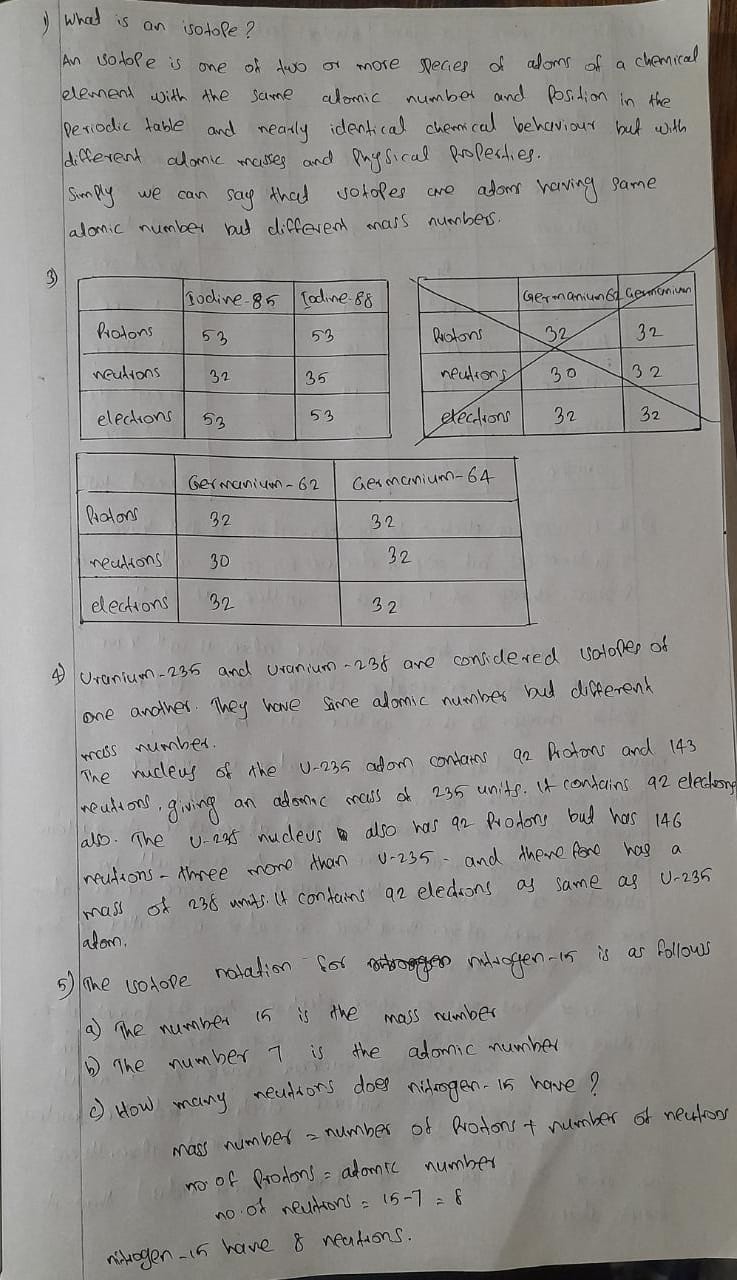 1) What is an isotope?
An isotope is one of two or more species of atoms of a chemical
element with the same atomic number and position in the
periodic table and nearly identical chemical behaviour but with
different atomic masses and physical properties.
Simply we can say that isotopes are atoms having same
atomic number but different mass numbers.
3)
Iodine-85 Iodine-88
Protons 53 53
neutrons 32 35
electrons 53 53
Germanium 62 Germanium
Protons 32 32
neutrons 30 32
electrons 32 32
Germanium-62 Germanium-64
Protons 32 32
neutrons 30 32
electrons 32 32
4) Uranium-235 and Uranium-238 are considered isotopes of
one another. They have same atomic number but different
mass number.
The nucleus of the U-235 atom contains 92 Protons and 143
neutrons, giving an atomic mass of 235 units. It contains 92 electrons
also. The U-235 nucleus also has 92 Protons but has 146
neutrons - three more than U-235 - and therefore has a
mass of 238 units. It contains 92 electrons as same as U-235
atom.
5) The isotope notation for nitrogen-15 is as follows
a) The number 15 is the mass number
b) The number 7 is the atomic number
c) How many neutrons does nitrogen-15 have?
mass number = number of Protons + number of neutrons
no of Protons = atomic number
no. of neutrons = 15-7 = 8
nitrogen-15 have 8 neutrons.